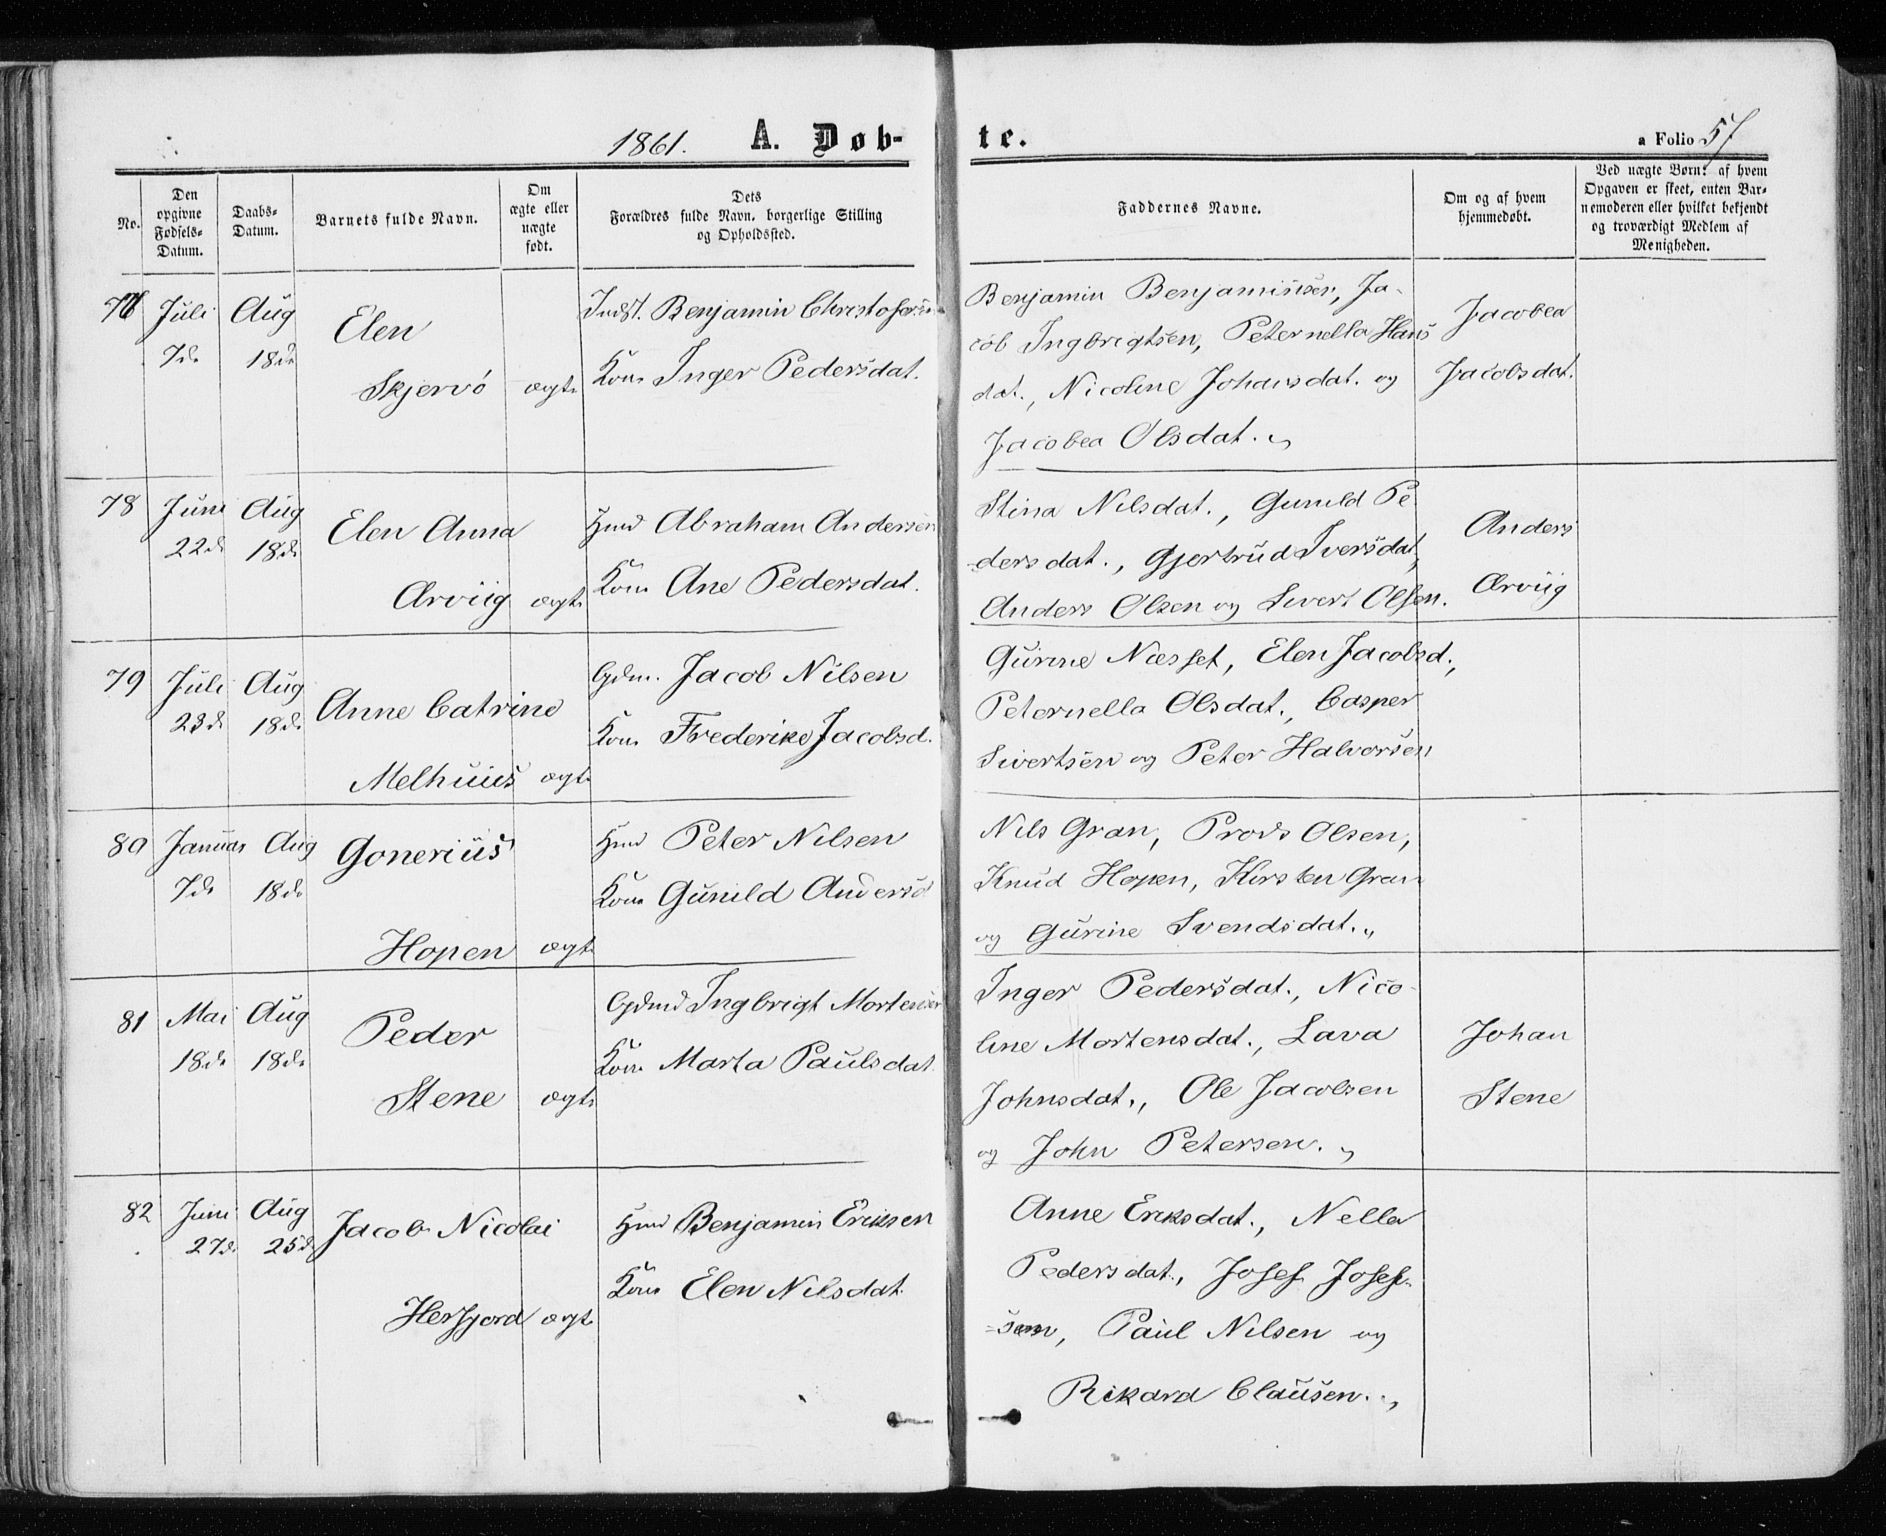 1861. A. Døb-
te.
a Folio 57
No.
Den opgivne Fødsels-Datum.
Daabs-Datum.
Barnets fulde Navn.
Om ægte eller uægte født.
Dets
Forældres fulde Navn, borgerlige Stilling
og Opholdssted.
Faddernes Navne.
Om og af hvem
hjemmedøbt.
Ved uægte Børn: af hvem
Opgaven er skeet, enten Bar-
nemoderen eller hvilket bekjendt
og troværdigt Medlem af
Menigheden.
Juli Aug Elen Indst. Benjamin Christofersen
7de 18de Skjervö ægte Kone Inger Pedersdat.
Benjamin Benjaminsen, Ja-
cob Ingbrigtsen, Peternella Hans
dat., Nicoline Johansdat. og
Jacobea Olsdat.
Jacobea
Jacobsdat.
78 Juni Aug Elen Anna Hmd Abraham Andersen
22de 18de Ærviig ægte Kone Ane Pedersdat.
Stina Nilsdat., Gunild Pe
dersdat., Gjertrud Iversdat,
Anders Olsen og Sivert Olsen.
Anders
Ærviig
79 Juli Aug Anne Catrine Gdm. Jacob Nilsen
23de 18de Melhuus ægte Kone Frederike Jacobsd.
Gurine Næsset, Elen Jacobsd.,
Peternella Olsdat., Casper
Sivertsen og Peter Halvorsen
80 Januar Aug Gonerius Hmd Peter Nilsen
7de 18de Hopen ægte Kone Gunild Andersd
Nils Gran, Prods Olsen,
Knud Hopen, Kirsten Gran
og Gurine Svendsdat.
81 Mai Aug Peder Gdmd Ingbrigt Mortensen
18de 18de Stene ægte Kone Marta Paulsdat
Inger Pedersdat., Nico-
line Mortensdat., Lava
Johnsdat., Ole Jacobsen
og John Petersen.
Johan
Stene
82 Juni Aug Jacob Nicolai Hmd Benjamin Eriksen
27de 25de Herfjord ægte Kone Elen Nilsdat.
Anne Eriksdat., Nella
Pedersdat., Josef Josef-
sen, Paul Nilsen og
Rikard Clausen.